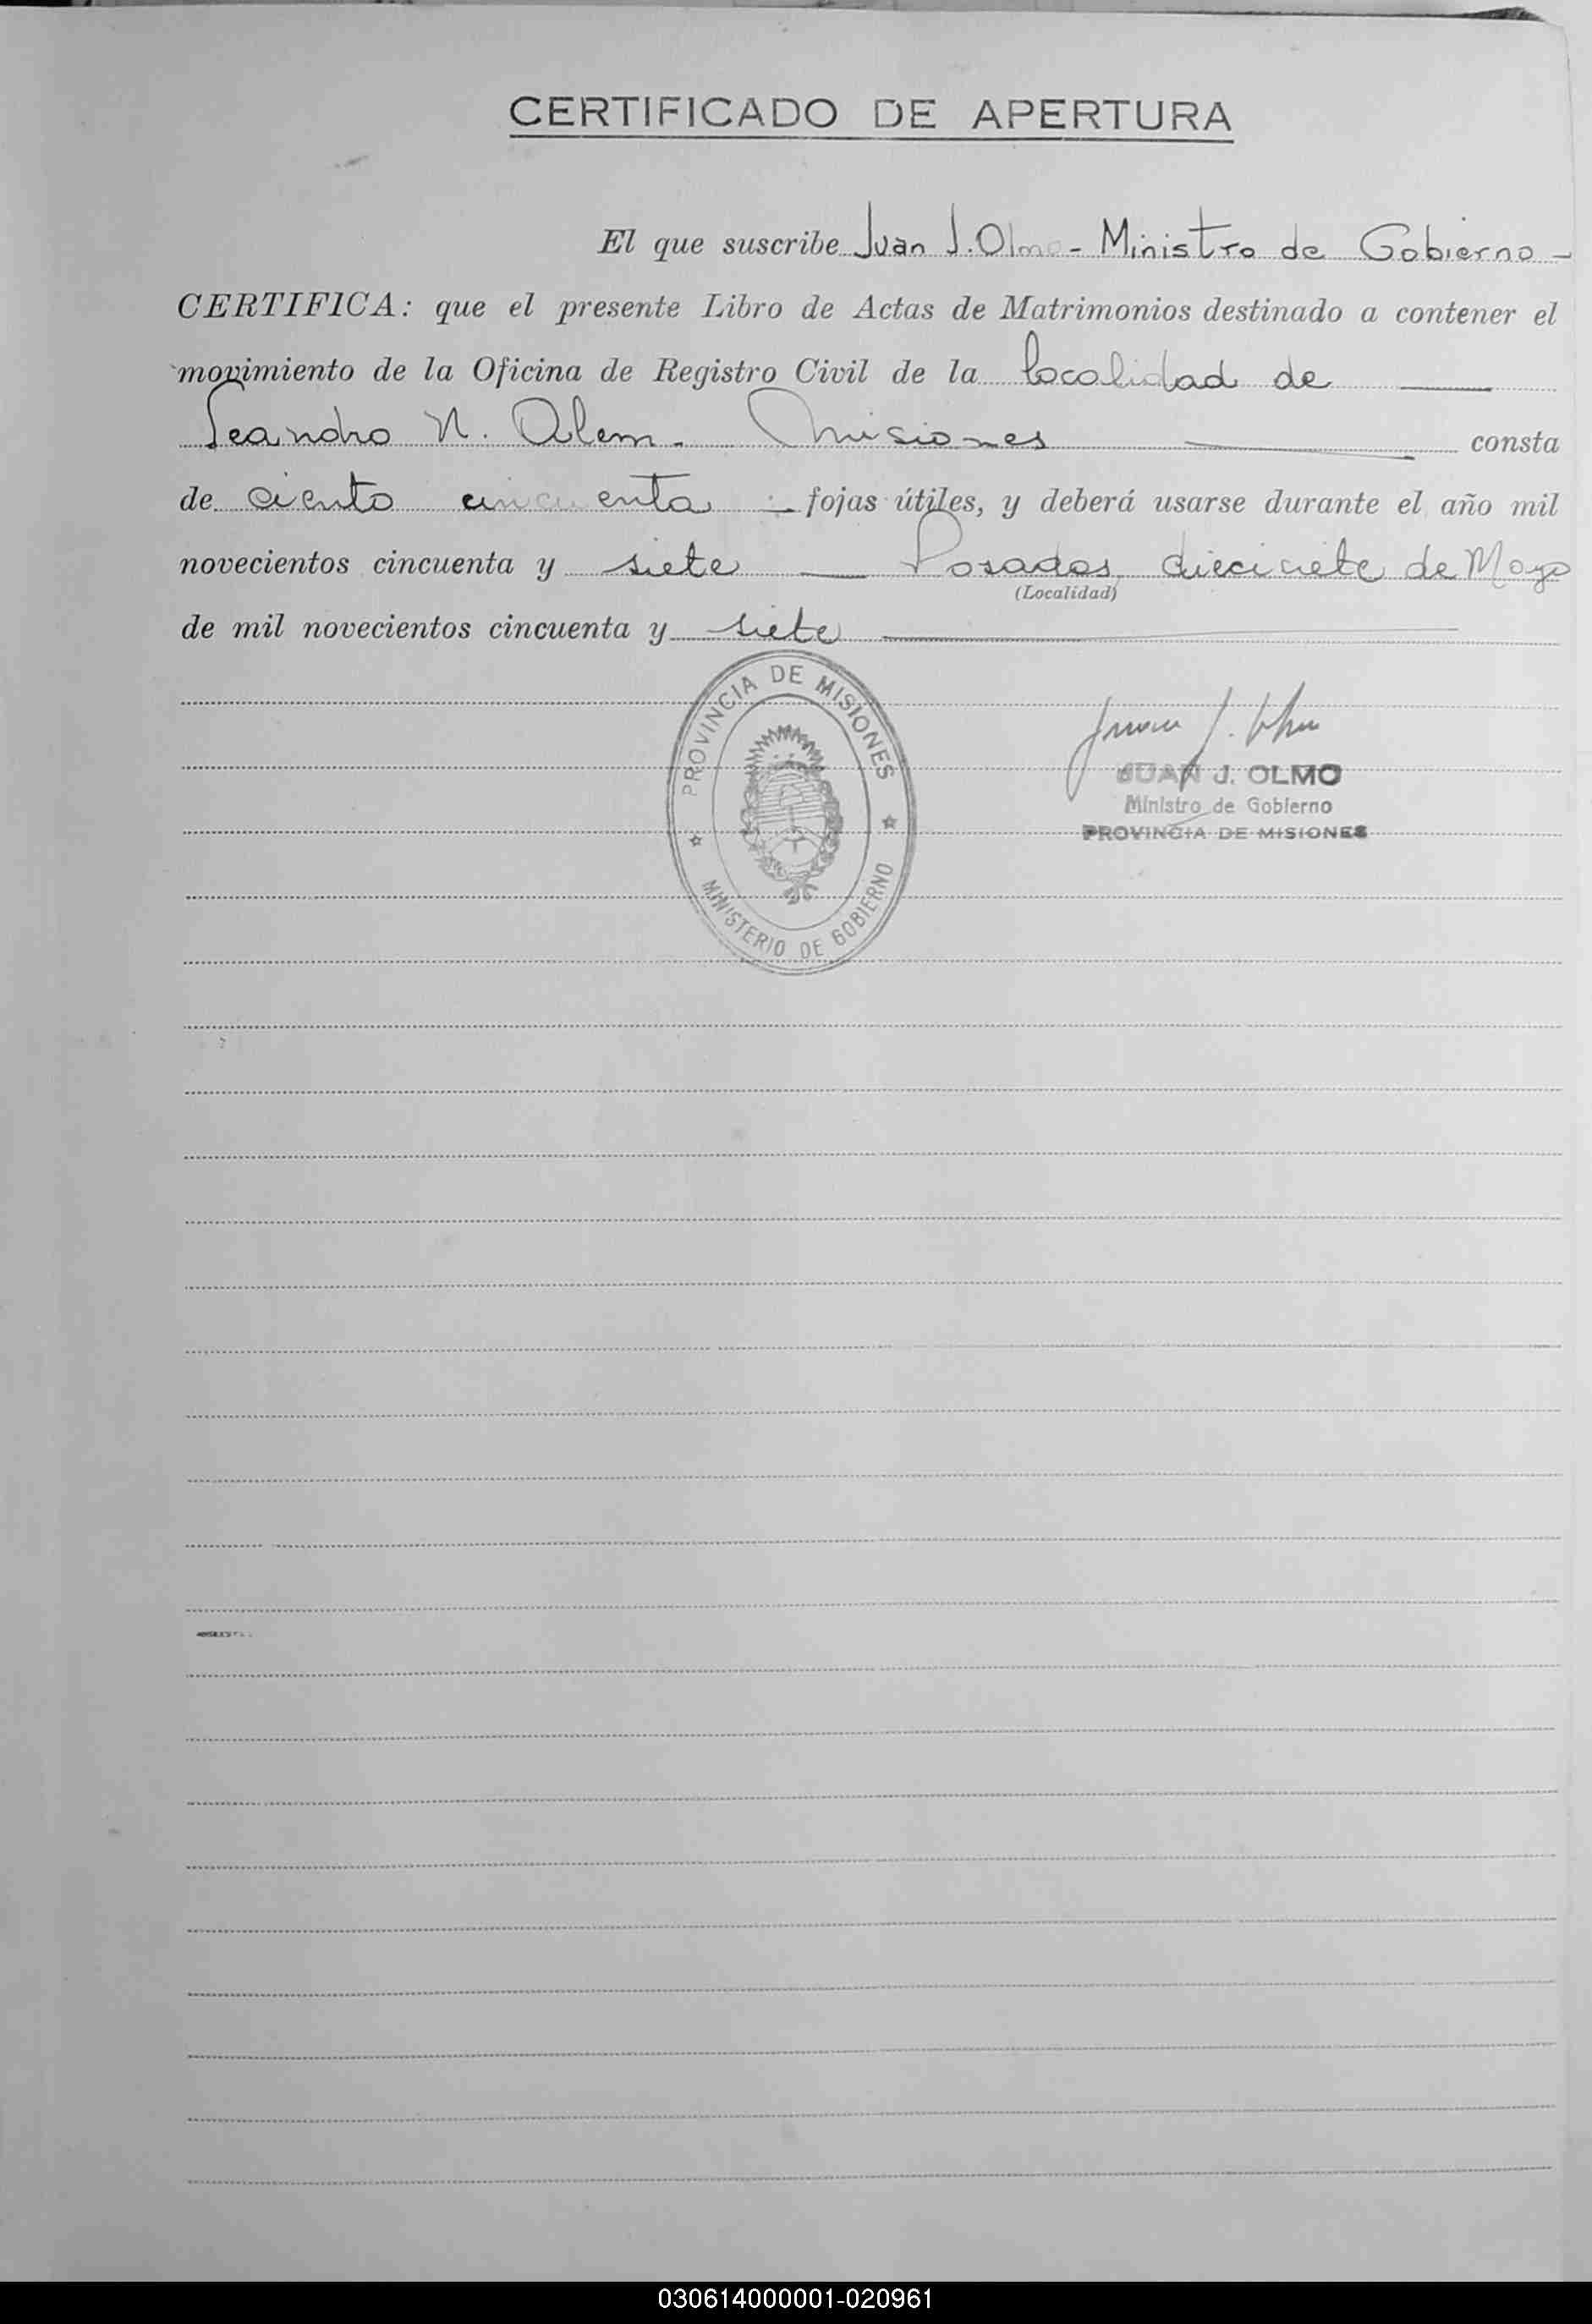 CERTIFICADO DE APERTURA
El que suscribe Juan J. Olmo - Ministro de Gobierno -
CERTIFICA: que el presente Libro de Actas de Matrimonios destinado a contener el
movimiento de la Oficina de Registro Civil de la localidad de
Leandro N. Alem - Misiones consta
de ciento cincuenta - fojas útiles, y deberá usarse durante el año mil
novecientos cincuenta y siete Posadas, diecisiete de Mayo
(Localidad)
de mil novecientos cincuenta y siete
PROVINCIA DE MISIONES
MINISTERIO DE GOBIERNO
Juan J. Olmo
JUAN J. OLMO
Ministro de Gobierno
PROVINCIA DE MISIONES
030614000001-020961